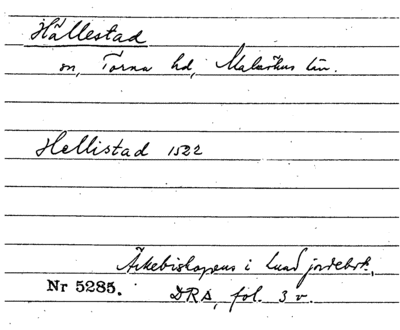 Hällestad
sn, Torna hd, Malmöhus län.
Hellistad 1522
Ärkebiskopens i Lund jordebok,
Nr 5285. DRA, fol. 3 v.